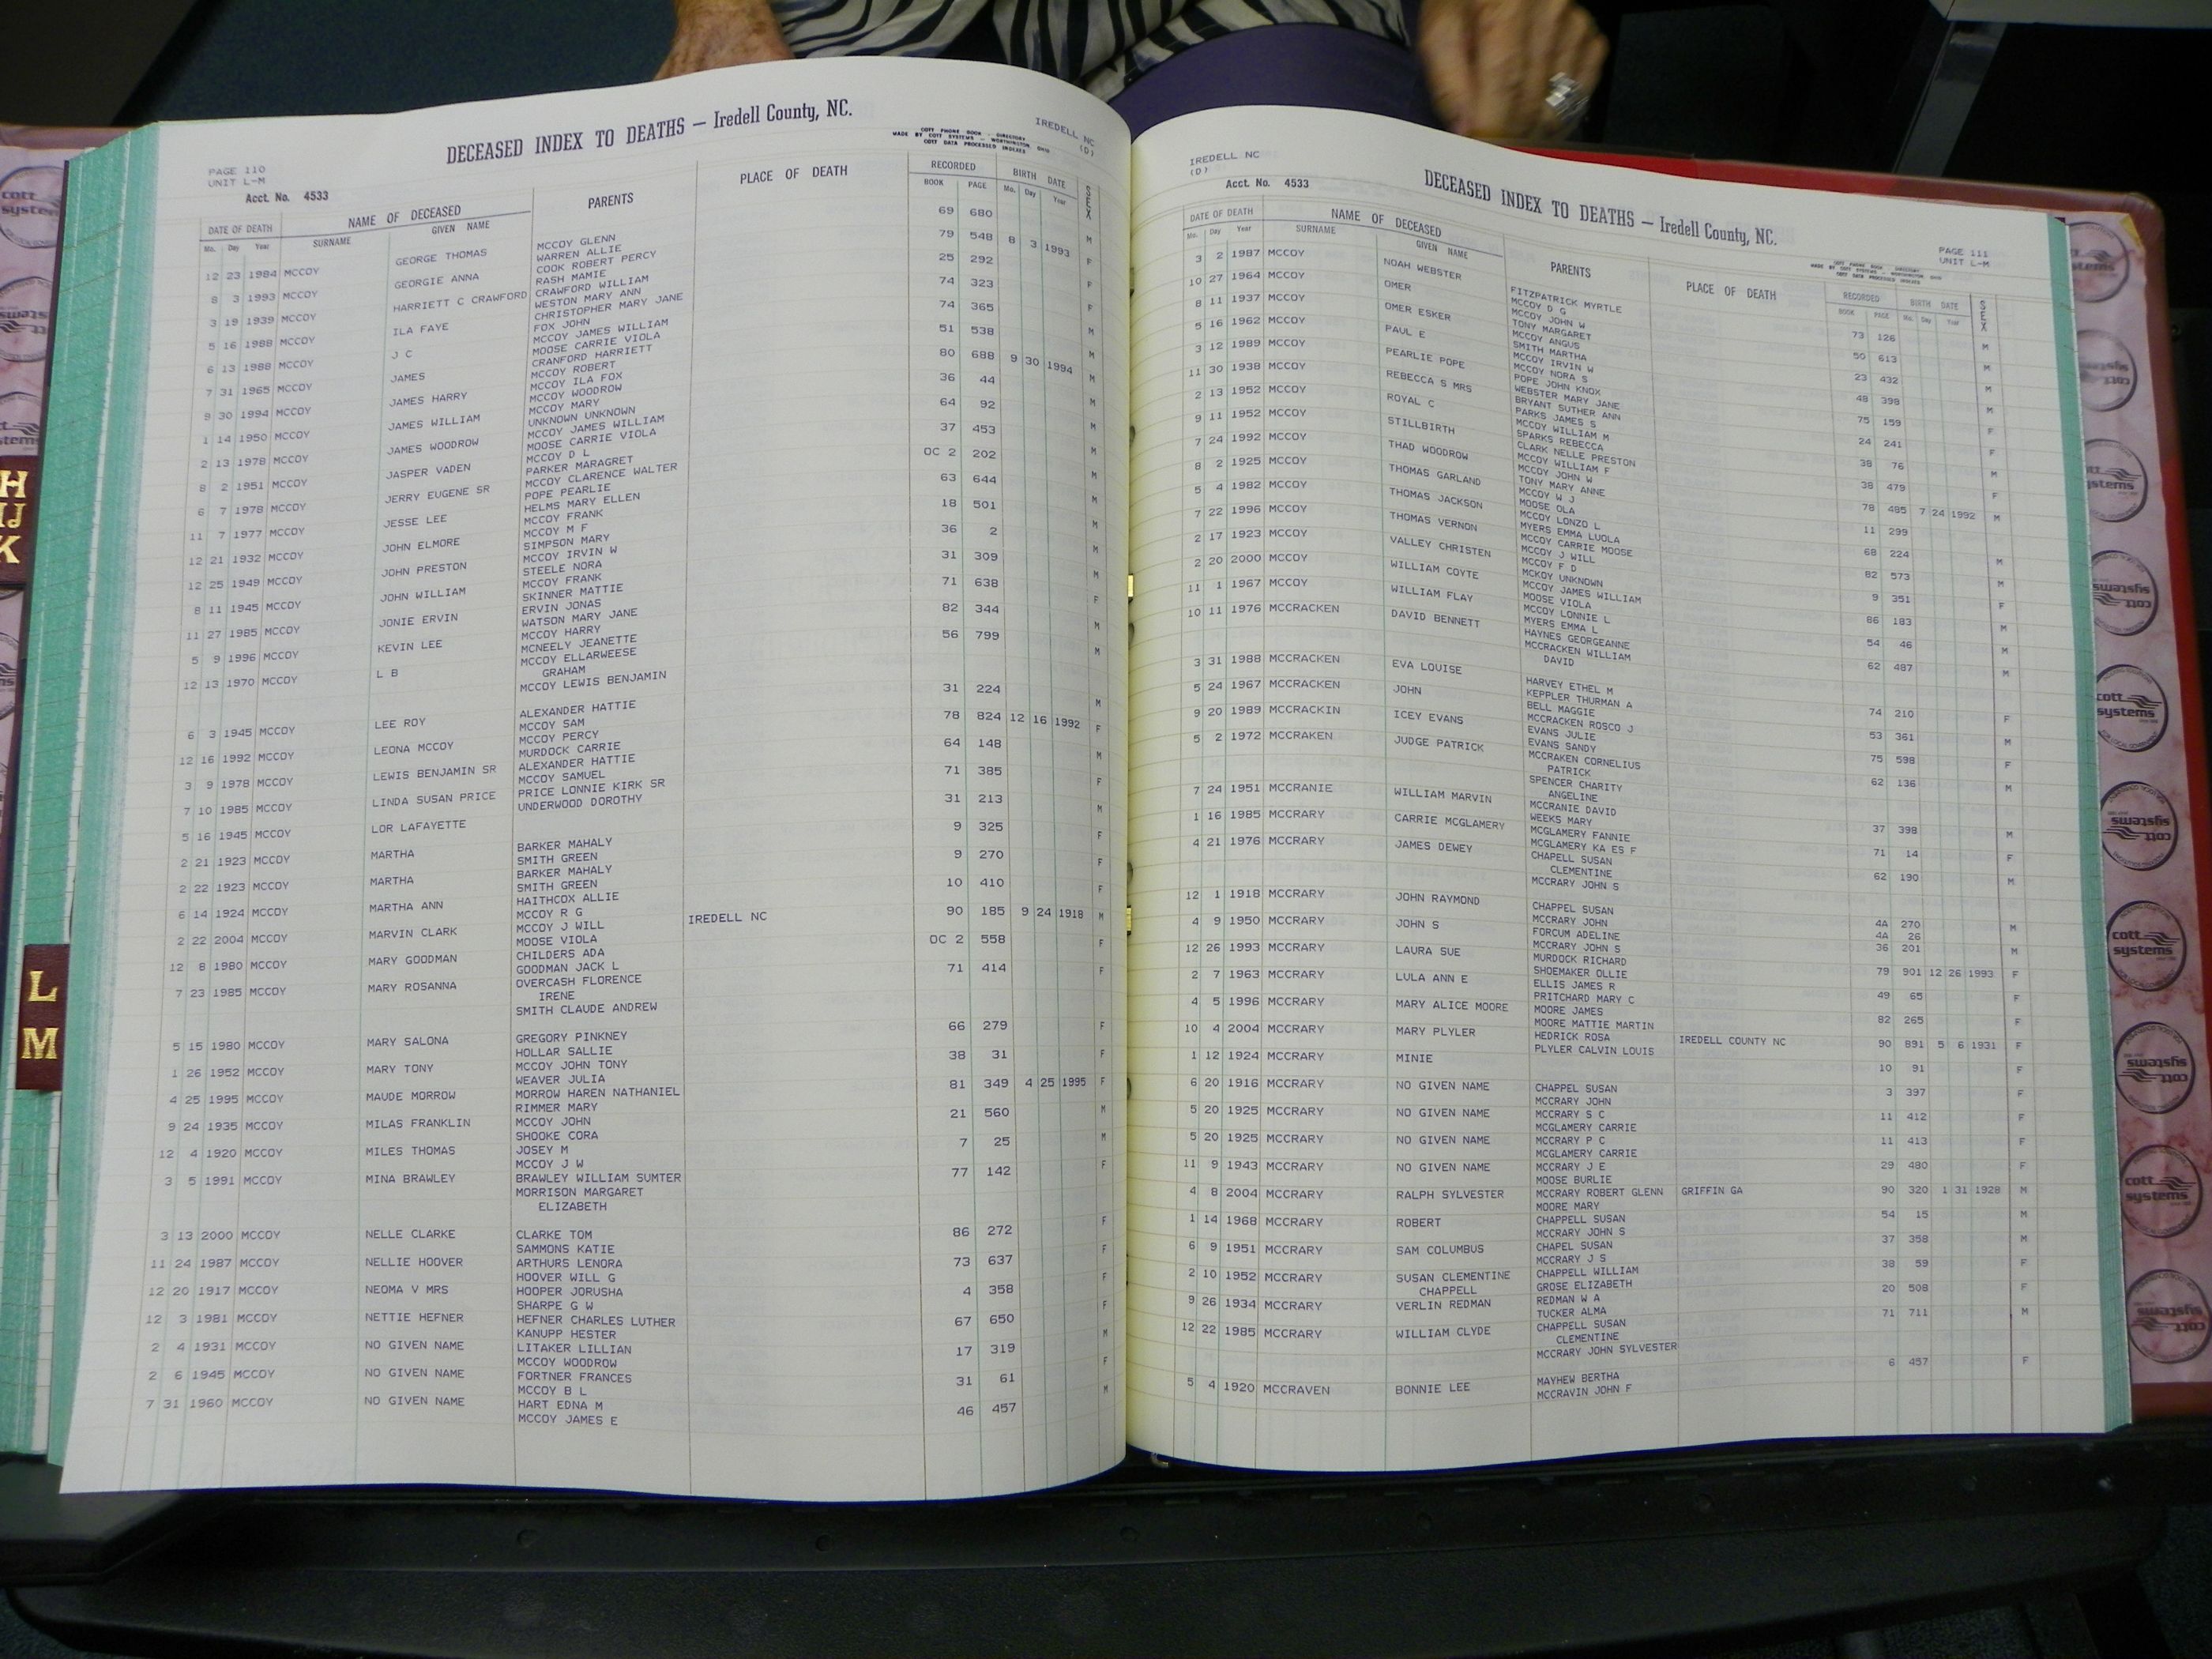 DECEASED INDEX TO DEATHS — Iredell County, NC.
IREDELL NC
(D)
COTT PHONE BOOK - DIRECTORY
MADE BY COTT SYSTEMS - WORTHINGTON, OHIO
COTT DATA PROCESSED INDEXES
PAGE 110
UNIT L-M
Acct. No. 4533
DATE OF DEATH NAME OF DECEASED PARENTS PLACE OF DEATH RECORDED BIRTH DATE SEX
Mo. Day Year SURNAME GIVEN NAME BOOK PAGE Mo. Day Year
12 23 1984 MCCOY GEORGE THOMAS MCCOY GLENN 69 680 M
WARREN ALLIE
8 3 1993 MCCOY GEORGIE ANNA COOK ROBERT PERCY 79 548 8 3 1993 F
RASH MAMIE
3 19 1939 MCCOY HARRIETT C CRAWFORD CRAWFORD WILLIAM 25 292 F
WESTON MARY ANN
5 16 1988 MCCOY ILA FAYE CHRISTOPHER MARY JANE 74 323 F
FOX JOHN
6 13 1988 MCCOY J C MCCOY JAMES WILLIAM 74 365 M
MOOSE CARRIE VIOLA
7 31 1965 MCCOY JAMES CRANFORD HARRIETT 51 538 M
MCCOY ROBERT
9 30 1994 MCCOY JAMES HARRY MCCOY ILA FOX 80 688 9 30 1994 M
MCCOY WOODROW
1 14 1950 MCCOY JAMES WILLIAM MCCOY MARY 36 44 M
UNKNOWN UNKNOWN
2 13 1978 MCCOY JAMES WOODROW MCCOY JAMES WILLIAM 64 92 M
MOOSE CARRIE VIOLA
8 2 1951 MCCOY JASPER VADEN MCCOY D L 37 453 M
PARKER MARAGRET
6 7 1978 MCCOY JERRY EUGENE SR MCCOY CLARENCE WALTER OC 2 202 M
POPE PEARLIE
11 7 1977 MCCOY JESSE LEE HELMS MARY ELLEN 63 644 M
MCCOY FRANK
12 21 1932 MCCOY JOHN ELMORE MCCOY M F 18 501 M
SIMPSON MARY
12 25 1949 MCCOY JOHN PRESTON MCCOY IRVIN W 36 2 M
STEELE NORA
8 11 1945 MCCOY JOHN WILLIAM MCCOY FRANK 31 309 M
SKINNER MATTIE
11 27 1985 MCCOY JONIE ERVIN ERVIN JONAS 71 638 F
WATSON MARY JANE
5 9 1996 MCCOY KEVIN LEE MCCOY HARRY 82 344 M
MCNEELY JEANETTE
12 13 1970 MCCOY L B MCCOY ELLARWEESE 56 799 M
GRAHAM
MCCOY LEWIS BENJAMIN
6 3 1945 MCCOY LEE ROY ALEXANDER HATTIE 31 224 M
MCCOY SAM
12 16 1992 MCCOY LEONA MCCOY MCCOY PERCY 78 824 12 16 1992 F
MURDOCK CARRIE
3 9 1978 MCCOY LEWIS BENJAMIN SR ALEXANDER HATTIE 64 148 M
MCCOY SAMUEL
7 10 1985 MCCOY LINDA SUSAN PRICE PRICE LONNIE KIRK SR 71 385 F
UNDERWOOD DOROTHY
5 16 1945 MCCOY LOR LAFAYETTE 31 213 M
2 21 1923 MCCOY MARTHA BARKER MAHALY 9 325 F
SMITH GREEN
2 22 1923 MCCOY MARTHA BARKER MAHALY 9 270 F
SMITH GREEN
6 14 1924 MCCOY MARTHA ANN HAITHCOX ALLIE 10 410 F
MCCOY R G
2 22 2004 MCCOY MARVIN CLARK MCCOY J WILL IREDELL NC 90 185 9 24 1918 M
MOOSE VIOLA
12 8 1980 MCCOY MARY GOODMAN CHILDERS ADA OC 2 558 F
GOODMAN JACK L
7 23 1985 MCCOY MARY ROSANNA OVERCASH FLORENCE 71 414 F
IRENE
SMITH CLAUDE ANDREW
5 15 1980 MCCOY MARY SALONA GREGORY PINKNEY 66 279 F
HOLLAR SALLIE
1 26 1952 MCCOY MARY TONY MCCOY JOHN TONY 38 31 F
WEAVER JULIA
4 25 1995 MCCOY MAUDE MORROW MORROW HAREN NATHANIEL 81 349 4 25 1995 F
RIMMER MARY
9 24 1935 MCCOY MILAS FRANKLIN MCCOY JOHN 21 560 M
SHOOKE CORA
12 4 1920 MCCOY MILES THOMAS JOSEY M 7 25 M
MCCOY J W
3 5 1991 MCCOY MINA BRAWLEY BRAWLEY WILLIAM SUMTER 77 142 F
MORRISON MARGARET
ELIZABETH
3 13 2000 MCCOY NELLE CLARKE CLARKE TOM 86 272 F
SAMMONS KATIE
11 24 1987 MCCOY NELLIE HOOVER ARTHURS LENORA 73 637 F
HOOVER WILL G
12 20 1917 MCCOY NEOMA V MRS HOOPER JORUSHA 4 358 F
SHARPE G W
12 3 1981 MCCOY NETTIE HEFNER HEFNER CHARLES LUTHER 67 650 F
KANUPP HESTER
2 4 1931 MCCOY NO GIVEN NAME LITAKER LILLIAN 17 319 M
MCCOY WOODROW
2 6 1945 MCCOY NO GIVEN NAME FORTNER FRANCES 31 61 F
MCCOY B L
7 31 1960 MCCOY NO GIVEN NAME HART EDNA M 46 457 M
MCCOY JAMES E
IREDELL NC
(D)
Acct. No. 4533
DECEASED INDEX TO DEATHS — Iredell County, NC.
PAGE 111
UNIT L-M
DATE OF DEATH NAME OF DECEASED PARENTS PLACE OF DEATH RECORDED BIRTH DATE SEX
Mo. Day Year SURNAME GIVEN NAME BOOK PAGE Mo. Day Year
3 2 1987 MCCOY NOAH WEBSTER FITZPATRICK MYRTLE 73 126 M
MCCOY D G
10 27 1964 MCCOY OMER MCCOY JOHN W 50 613 M
TONY MARGARET
8 11 1937 MCCOY OMER ESKER MCCOY ANGUS 23 432 M
SMITH MARTHA
5 16 1962 MCCOY PAUL E MCCOY IRVIN W 48 398 M
MCCOY NORA S
3 12 1989 MCCOY PEARLIE POPE POPE JOHN KNOX 75 159 F
WEBSTER MARY JANE
11 30 1938 MCCOY REBECCA S MRS BRYANT SUTHER ANN 24 241 F
PARKS JAMES S
2 13 1952 MCCOY ROYAL C MCCOY WILLIAM M 38 76 M
SPARKS REBECCA
9 11 1952 MCCOY STILLBIRTH CLARK NELLE PRESTON 38 479 F
MCCOY WILLIAM F
7 24 1992 MCCOY THAD WOODROW MCCOY JOHN W 78 485 7 24 1992 M
TONY MARY ANNE
8 2 1925 MCCOY THOMAS GARLAND MCCOY W J 11 299
MOOSE OLA
5 4 1982 MCCOY THOMAS JACKSON MCCOY LONZO L 68 224 M
MYERS EMMA LUOLA
7 22 1996 MCCOY THOMAS VERNON MCCOY CARRIE MOOSE 82 573 M
MCCOY J WILL
2 17 1923 MCCOY VALLEY CHRISTEN MCCOY F D 9 351 F
MCKOY UNKNOWN
2 20 2000 MCCOY WILLIAM COYTE MCCOY JAMES WILLIAM 86 183 M
MOOSE VIOLA
11 1 1967 MCCOY WILLIAM FLAY MCCOY LONNIE L 54 46 M
MYERS EMMA L
10 11 1976 MCCRACKEN DAVID BENNETT HAYNES GEORGEANNE 62 487 M
MCCRACKEN WILLIAM
DAVID
3 31 1988 MCCRACKEN EVA LOUISE HARVEY ETHEL M 74 210 F
KEPPLER THURMAN A
5 24 1967 MCCRACKEN JOHN BELL MAGGIE 53 361 M
MCCRACKEN ROSCO J
9 20 1989 MCCRACKIN ICEY EVANS EVANS JULIE 75 598 F
EVANS SANDY
5 2 1972 MCCRAKEN JUDGE PATRICK MCCRAKEN CORNELIUS 62 136 M
PATRICK
SPENCER CHARITY
ANGELINE
7 24 1951 MCCRANIE WILLIAM MARVIN MCCRANIE DAVID 37 398 M
WEEKS MARY
1 16 1985 MCCRARY CARRIE MCGLAMERY MCGLAMERY FANNIE 71 14 F
MCGLAMERY KA ES F
4 21 1976 MCCRARY JAMES DEWEY CHAPELL SUSAN 62 190 M
CLEMENTINE
MCCRARY JOHN S
12 1 1918 MCCRARY JOHN RAYMOND CHAPPEL SUSAN 4A 270 M
MCCRARY JOHN 4A 26
4 9 1950 MCCRARY JOHN S FORCUM ADELINE 36 201 M
MCCRARY JOHN S
12 26 1993 MCCRARY LAURA SUE MURDOCK RICHARD 79 901 12 26 1993 F
SHOEMAKER OLLIE
2 7 1963 MCCRARY LULA ANN E ELLIS JAMES R 49 65 F
PRITCHARD MARY C
4 5 1996 MCCRARY MARY ALICE MOORE MOORE JAMES 82 265 F
MOORE MATTIE MARTIN
10 4 2004 MCCRARY MARY PLYLER HEDRICK ROSA IREDELL COUNTY NC 90 891 5 6 1931 F
PLYLER CALVIN LOUIS
1 12 1924 MCCRARY MINIE 10 91 F
6 20 1916 MCCRARY NO GIVEN NAME CHAPPEL SUSAN 3 397 F
MCCRARY JOHN
5 20 1925 MCCRARY NO GIVEN NAME MCCRARY S C 11 412 F
MCGLAMERY CARRIE
5 20 1925 MCCRARY NO GIVEN NAME MCCRARY P C 11 413 F
MCGLAMERY CARRIE
11 9 1943 MCCRARY NO GIVEN NAME MCCRARY J E 29 480 F
MOOSE BURLIE
4 8 2004 MCCRARY RALPH SYLVESTER MCCRARY ROBERT GLENN GRIFFIN GA 90 320 1 31 1928 M
MOORE MARY
1 14 1968 MCCRARY ROBERT CHAPPELL SUSAN 54 15 M
MCCRARY JOHN S
6 9 1951 MCCRARY SAM COLUMBUS CHAPEL SUSAN 37 358 M
MCCRARY J S
2 10 1952 MCCRARY SUSAN CLEMENTINE CHAPPELL WILLIAM 38 59 F
CHAPPELL GROSE ELIZABETH
9 26 1934 MCCRARY VERLIN REDMAN REDMAN W A 20 508 F
TUCKER ALMA
12 22 1985 MCCRARY WILLIAM CLYDE CHAPPELL SUSAN 71 711 M
CLEMENTINE
MCCRARY JOHN SYLVESTER
5 4 1920 MCCRAVEN BONNIE LEE MAYHEW BERTHA 6 457 F
MCCRAVIN JOHN F
H
IJ
K
L
M
cott systems